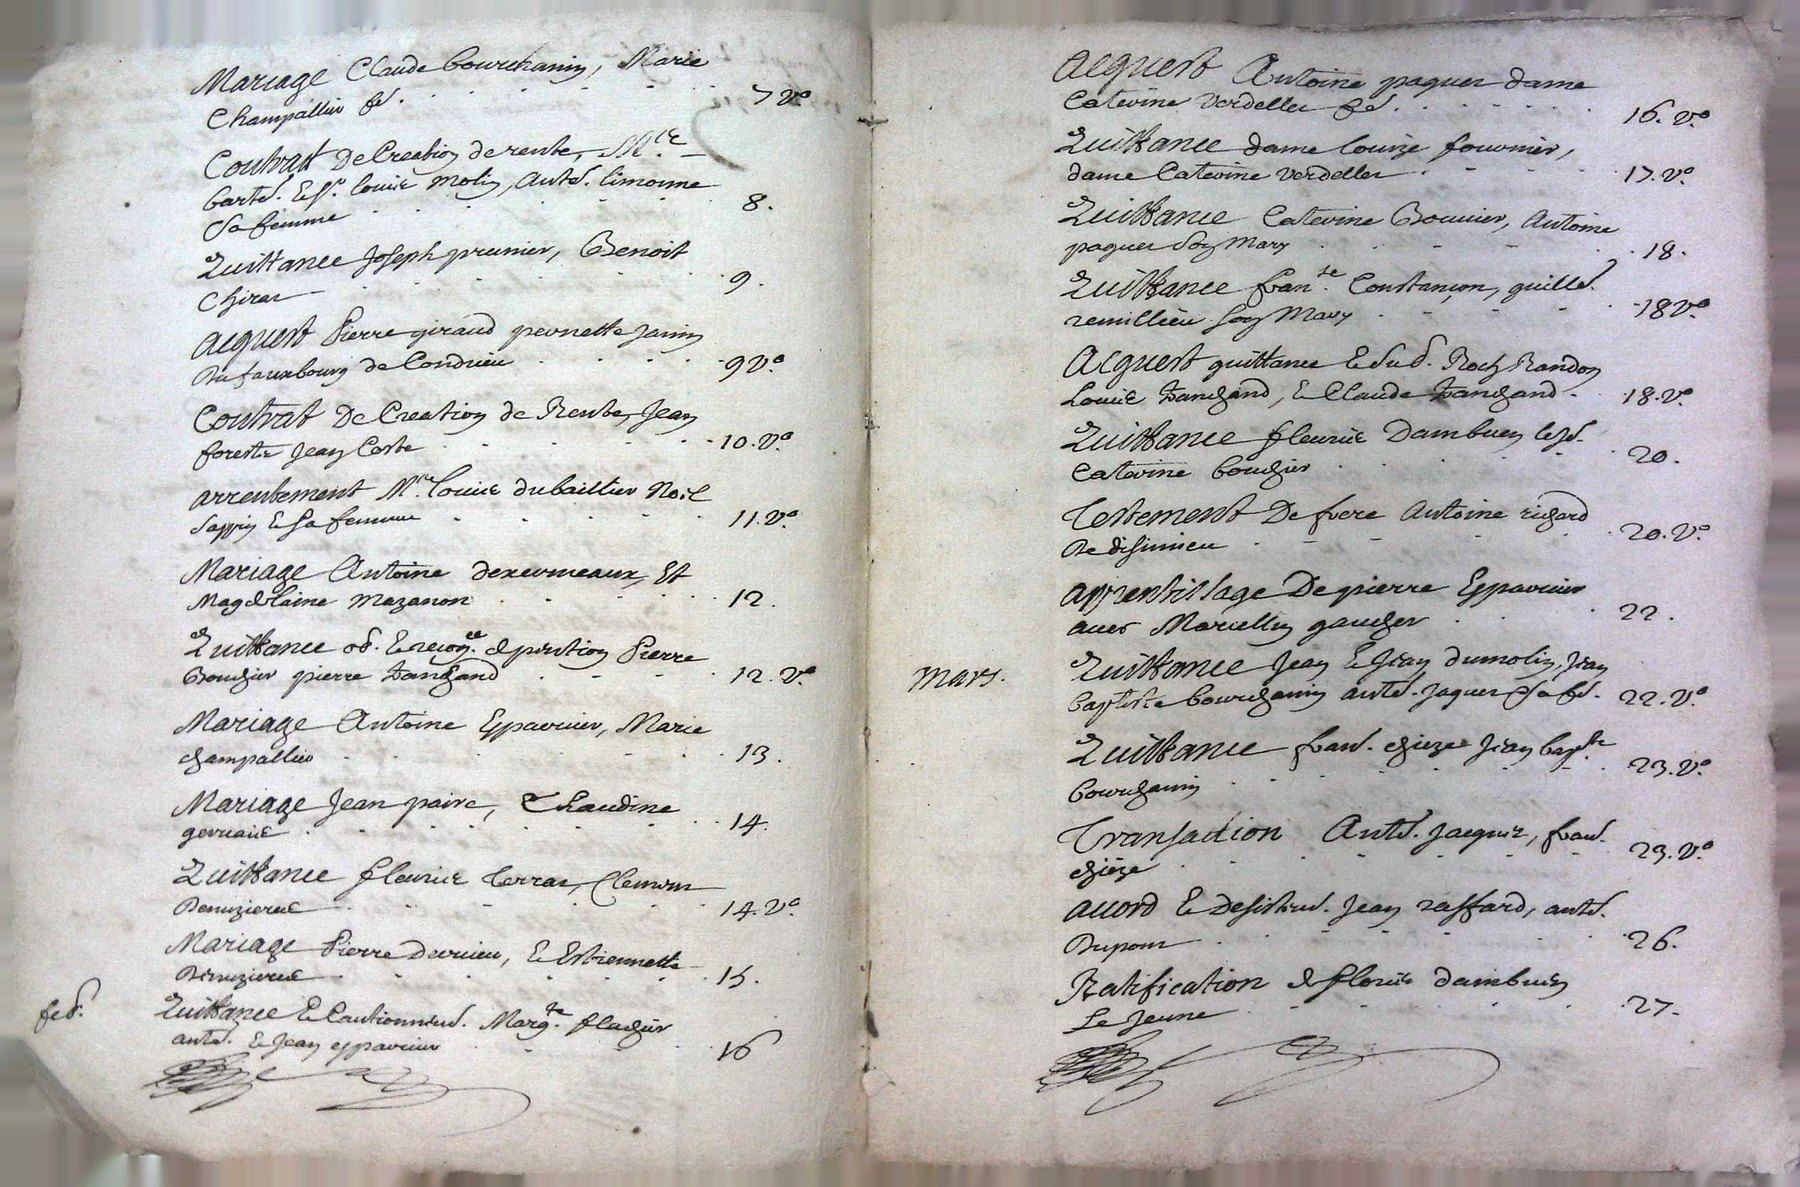 Mariage Claude Bourchanin, Marie
Champallier fd. 7 v°
Contratt De Creation de rente, M.re
Barté. E Sr. louis Molin, Anté. limonne
Sa femme 8.
Quittance Joseph prunier, Benoit
Chirat 9.
Acquest Pierre giraud pernette Janin
Du fauxbourg de Condrieu 9 v°
Contrat De Creation de Rente, Jean
forest Jean Coste 10. v°
arrentement M.re louis dubaillier Noel
Sappin E Sa femme 11. v°
Mariage Antoine dexermeaux, Et
Magdelaine Mazanon 12.
Quittance pierre
Bouchier pierre Danchand 12. v°
Mariage Antoine Eyparvier, Marie
champallier 13.
Mariage Jean paire, Claudine
gervais 14.
Quittance fleurie Terras, Clemens
Denuzieres 14. v°
Mariage Pierre Dervieu, E Estiennette
Denuzieres 15.
feb. Quittance E Cautionnem.t Marg.te flachier
anté. E Jean eyparvier 16
Acquest Antoine paquet dame
Caterine Verdellet fd. 16. v°
Quittance dame louize fournier,
dame Caterine verdellet 17. v°
Quittance Caterine Bonnier, Antoine
paquet Son Mary 18.
Quittance fran.se Constançon, guille.
remillieu Son Mary 18 v°
Acquest quittance E Sud. Roch Randon
Louis Danchand, E Claude Danchand. 18. v°
Quittance fleurie Dambuen
Caterine bouchier 20.
Testement De frere Antoine richard
De disimieu 20. v°
apprentissage De pierre Eyparvier
avec Marcellin gaucher 22.
Mars. Quittance Jean E Jean dumolin, Jean
baptiste bourchanin anté. Jaquet E Sa fe. 22. v°
Quittance fran. chieze Jean bap.te
bourchanin 23. v°
Transaction Anté. Jacquet, fran.
chieze 23. v°
accord E Desistem.t Jean raffard, anté.
Dupont 26.
Ratification de fleurie dambuen
Le Jeune 27.